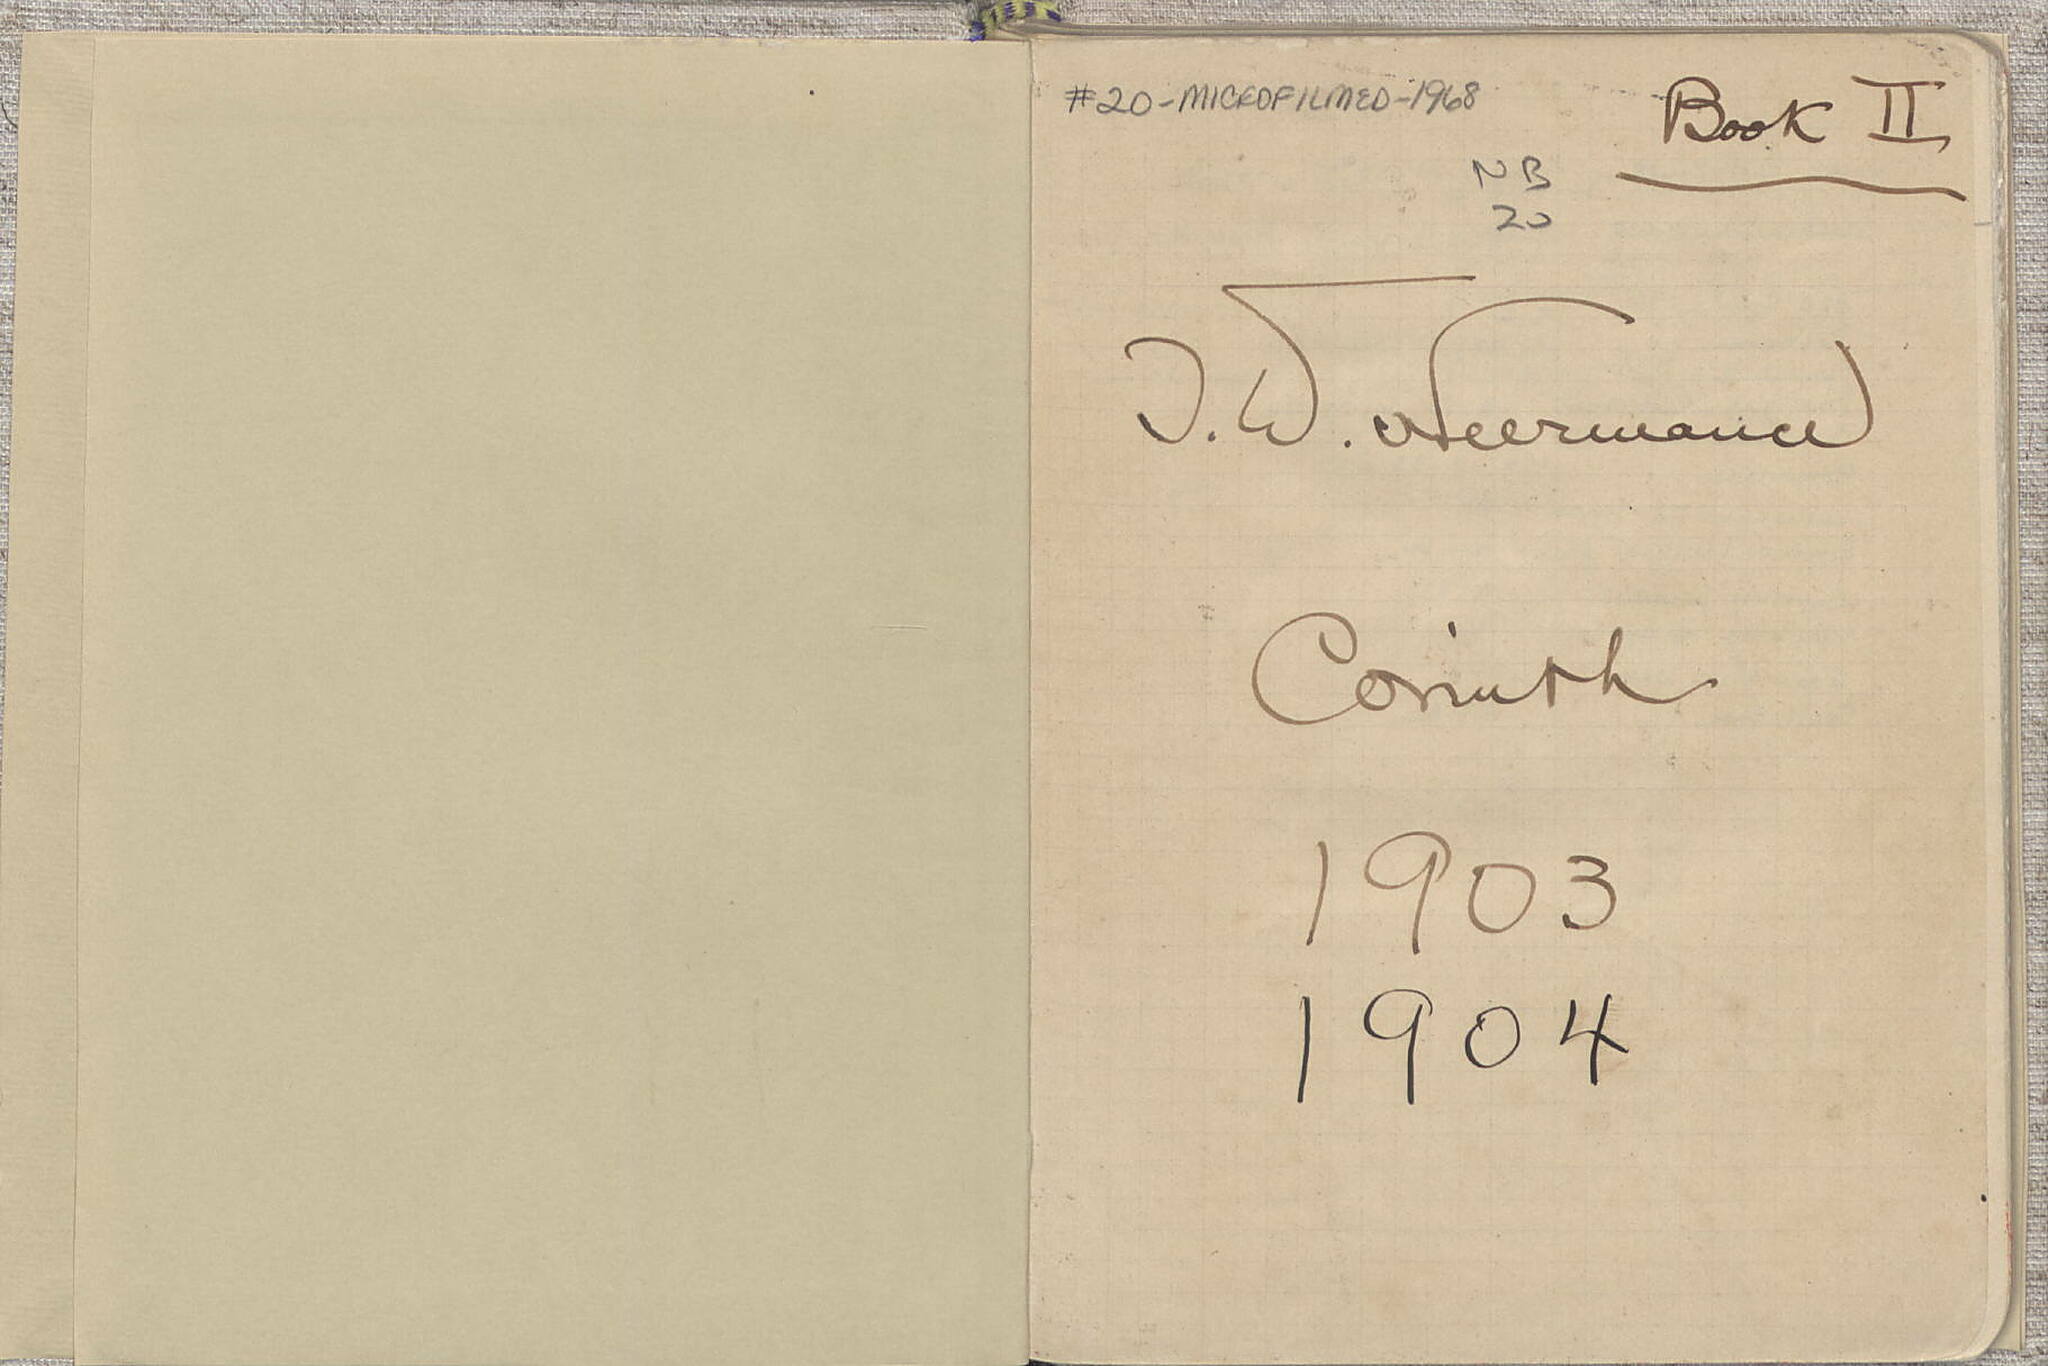 #20-MICROFILMED-1968
Book II
NB
20
T.W. Heermance
Corinth
1903
1904